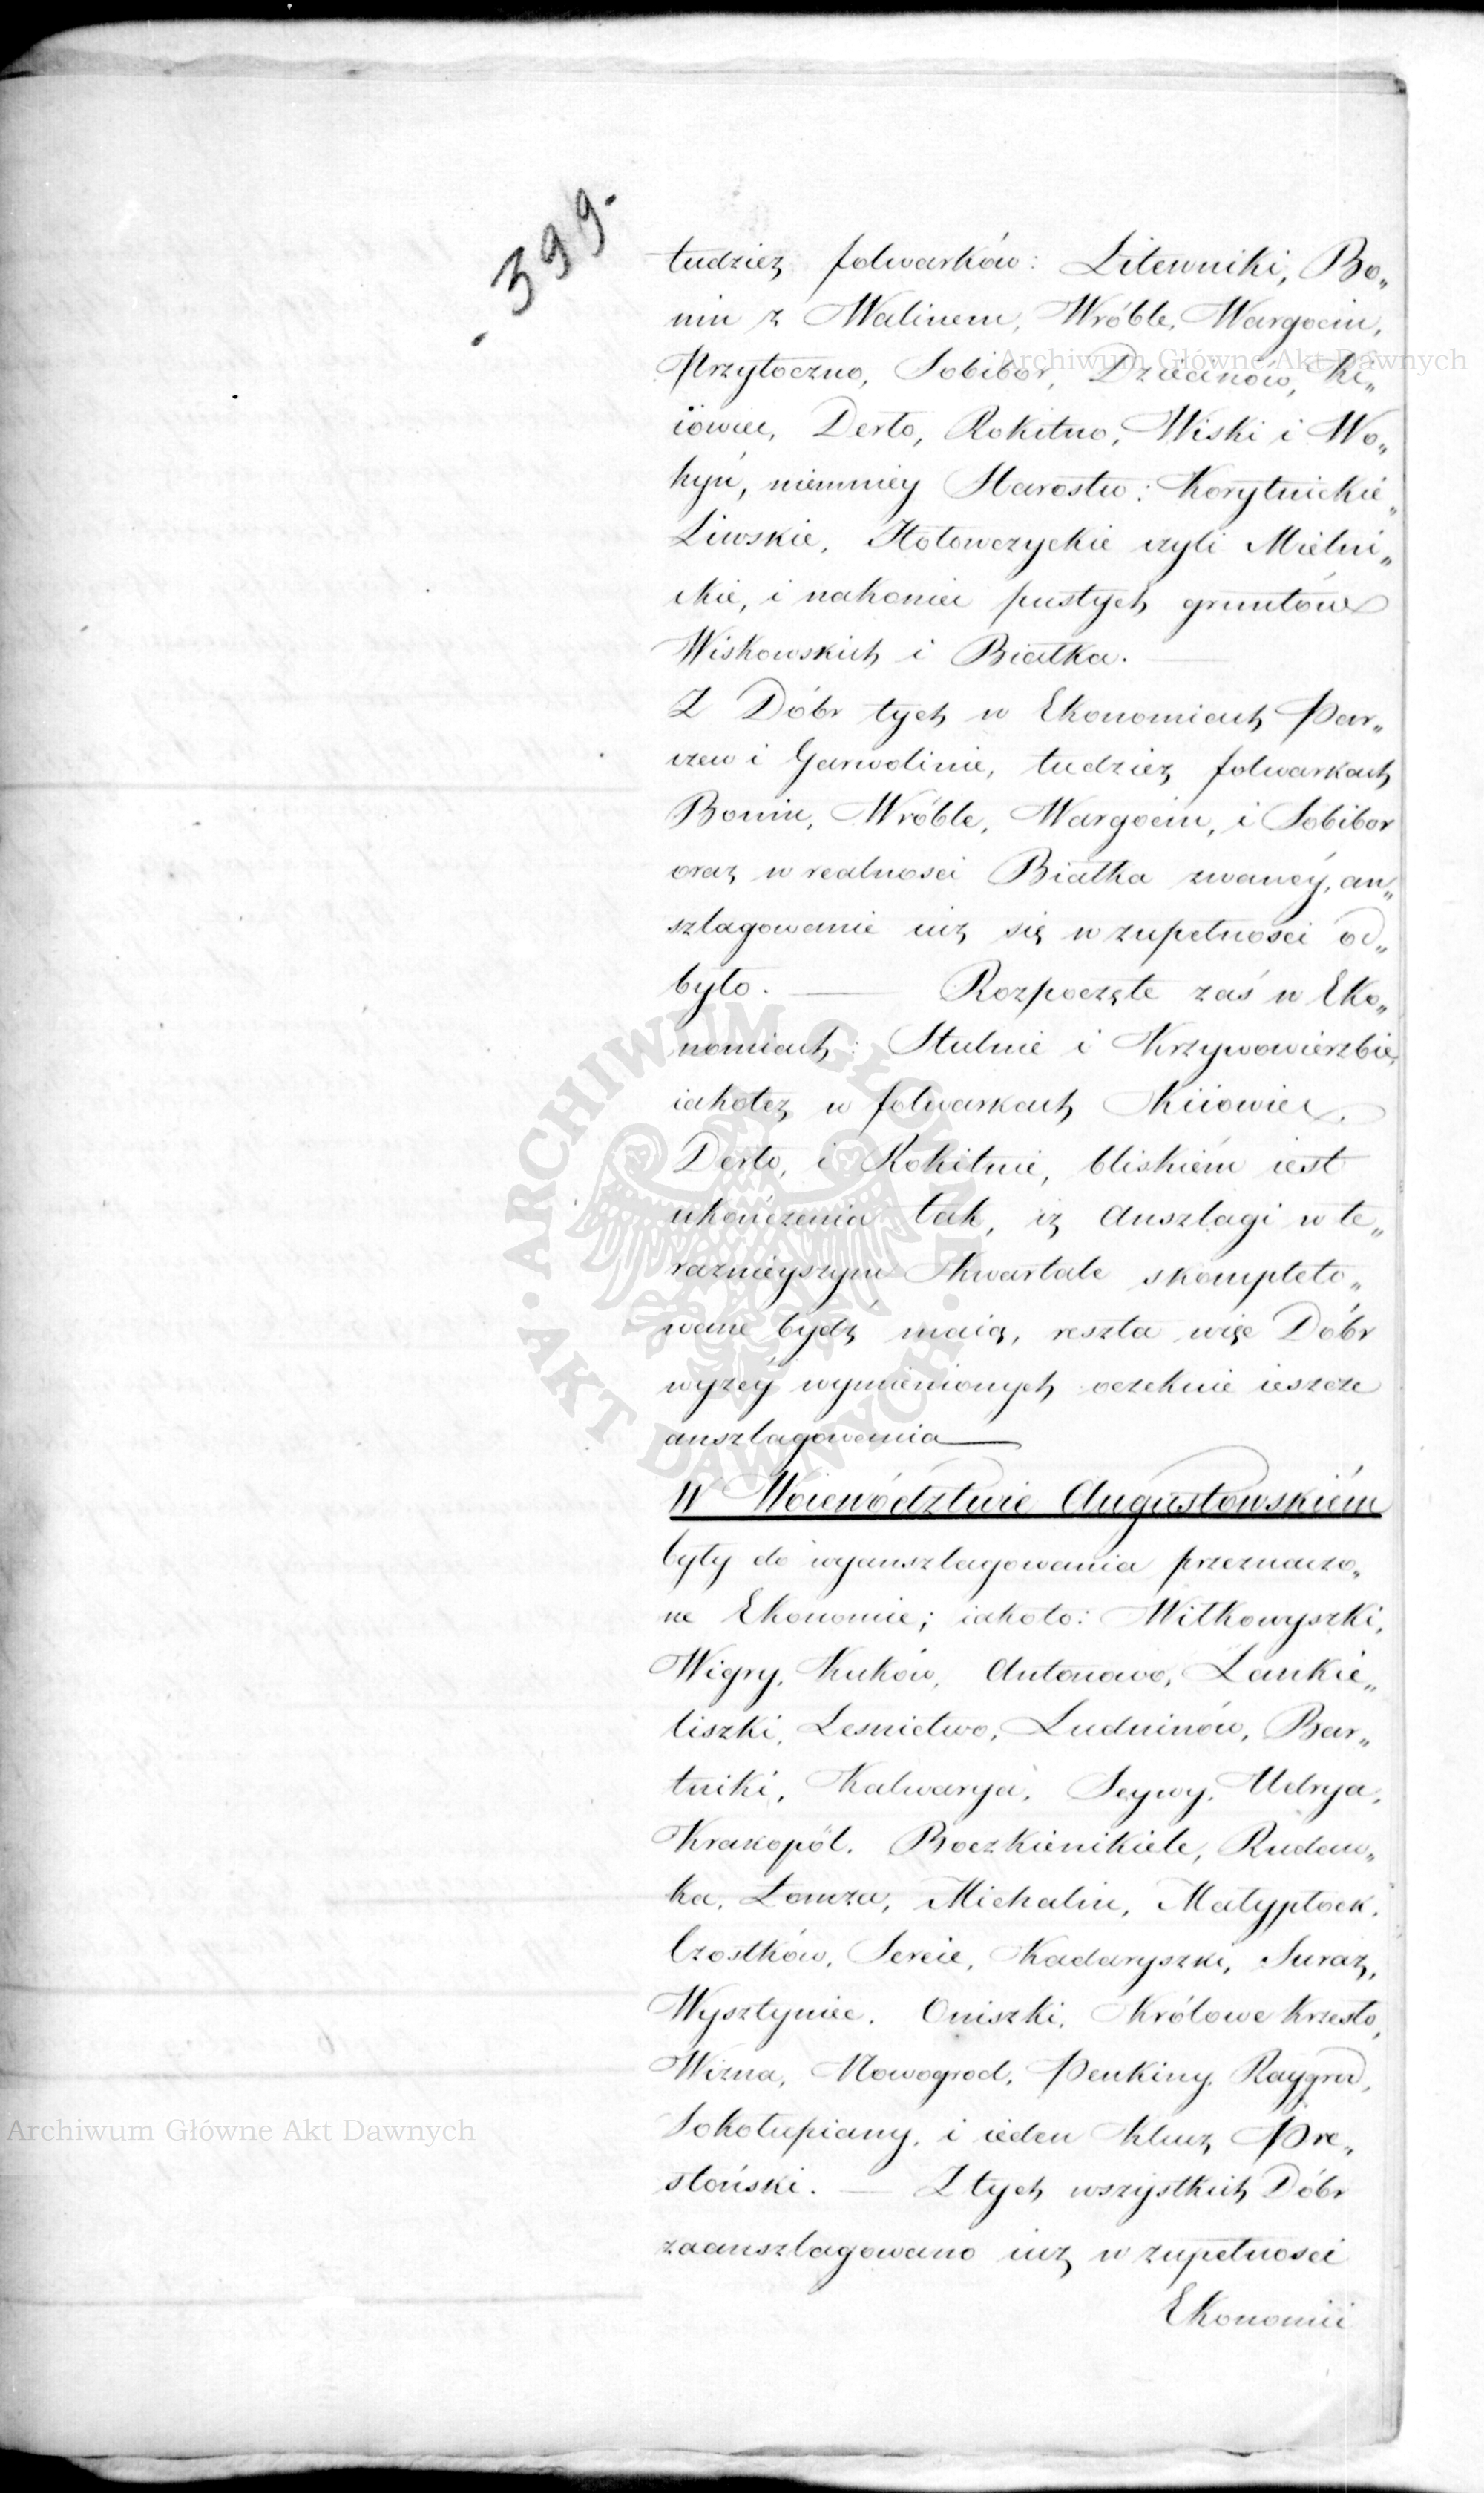 - 399.
tudzież folwarków: Litewniki, Bo„
nin z Walinem, Wróble, Wargocin,
Przytoczno, Sobibor, Dziecinów, Ki„
iowiec, Derło, Rokitno, Wiski i Wo„
hyń, niemniey Starostw: Korytnickie„
Liwskie, Hołowczyckie czyli Mielni„
ckie, i nakoniec pustych gruntów
Wiskowskich i Białka. —
Z Dóbr tych w Ekonomiach Par„
czew i Garwolinie, tudzież folwarkach
Bonin, Wróble, Wargocin, i Sobibor
oraz w realności Białka zwaney, an„
szlagowanie iuż się w zupełności od„
było. — Rozpoczęte zaś w Eko„
nomiach: Stulnie i Krzywowierzbie,
iakoteż w folwarkach Kiiowiec
Derło, i Rokitnie, bliskiém iest
ukończenia tak, iż Anszlagi w te„
raznieyszym Kwartale skompleto„
wane bydź maią, reszta więc Dóbr
wyżey wymienionych oczekuie ieszcze
anszlagowania —
W Woiewództwie Augustowskiém
były do wyanszlagowania przeznaczo„
ne Ekonomie; iakoto: Wiłkowyszki,
Wigry, Kuków, Antonowo, Lankie„
liszki, Lesnictwo, Ludwinów, Bar„
tniki, Kalwarya, Seywy, Udrya,
Krasnopól, Boczkienikiele, Rudaw„
ka, Łomża, Michalin, Małypłock,
Czostków, Sereie, Kadaryszki, Suraż,
Wysztyniec, Oniszki, Królowe Krzesło,
Wizna, Nowogrod, Penkiny, Raygrod,
Sokołupiany, i ieden Klucz Pre„
słoński. — Z tych wszystkich Dóbr
zaanszlagowano iuż w zupełności
Ekonomii
Archiwum Główne Akt Dawnych
Archiwum Główne Akt Dawnych
ARCHIWUM GŁÓWNE AKT DAWNYCH